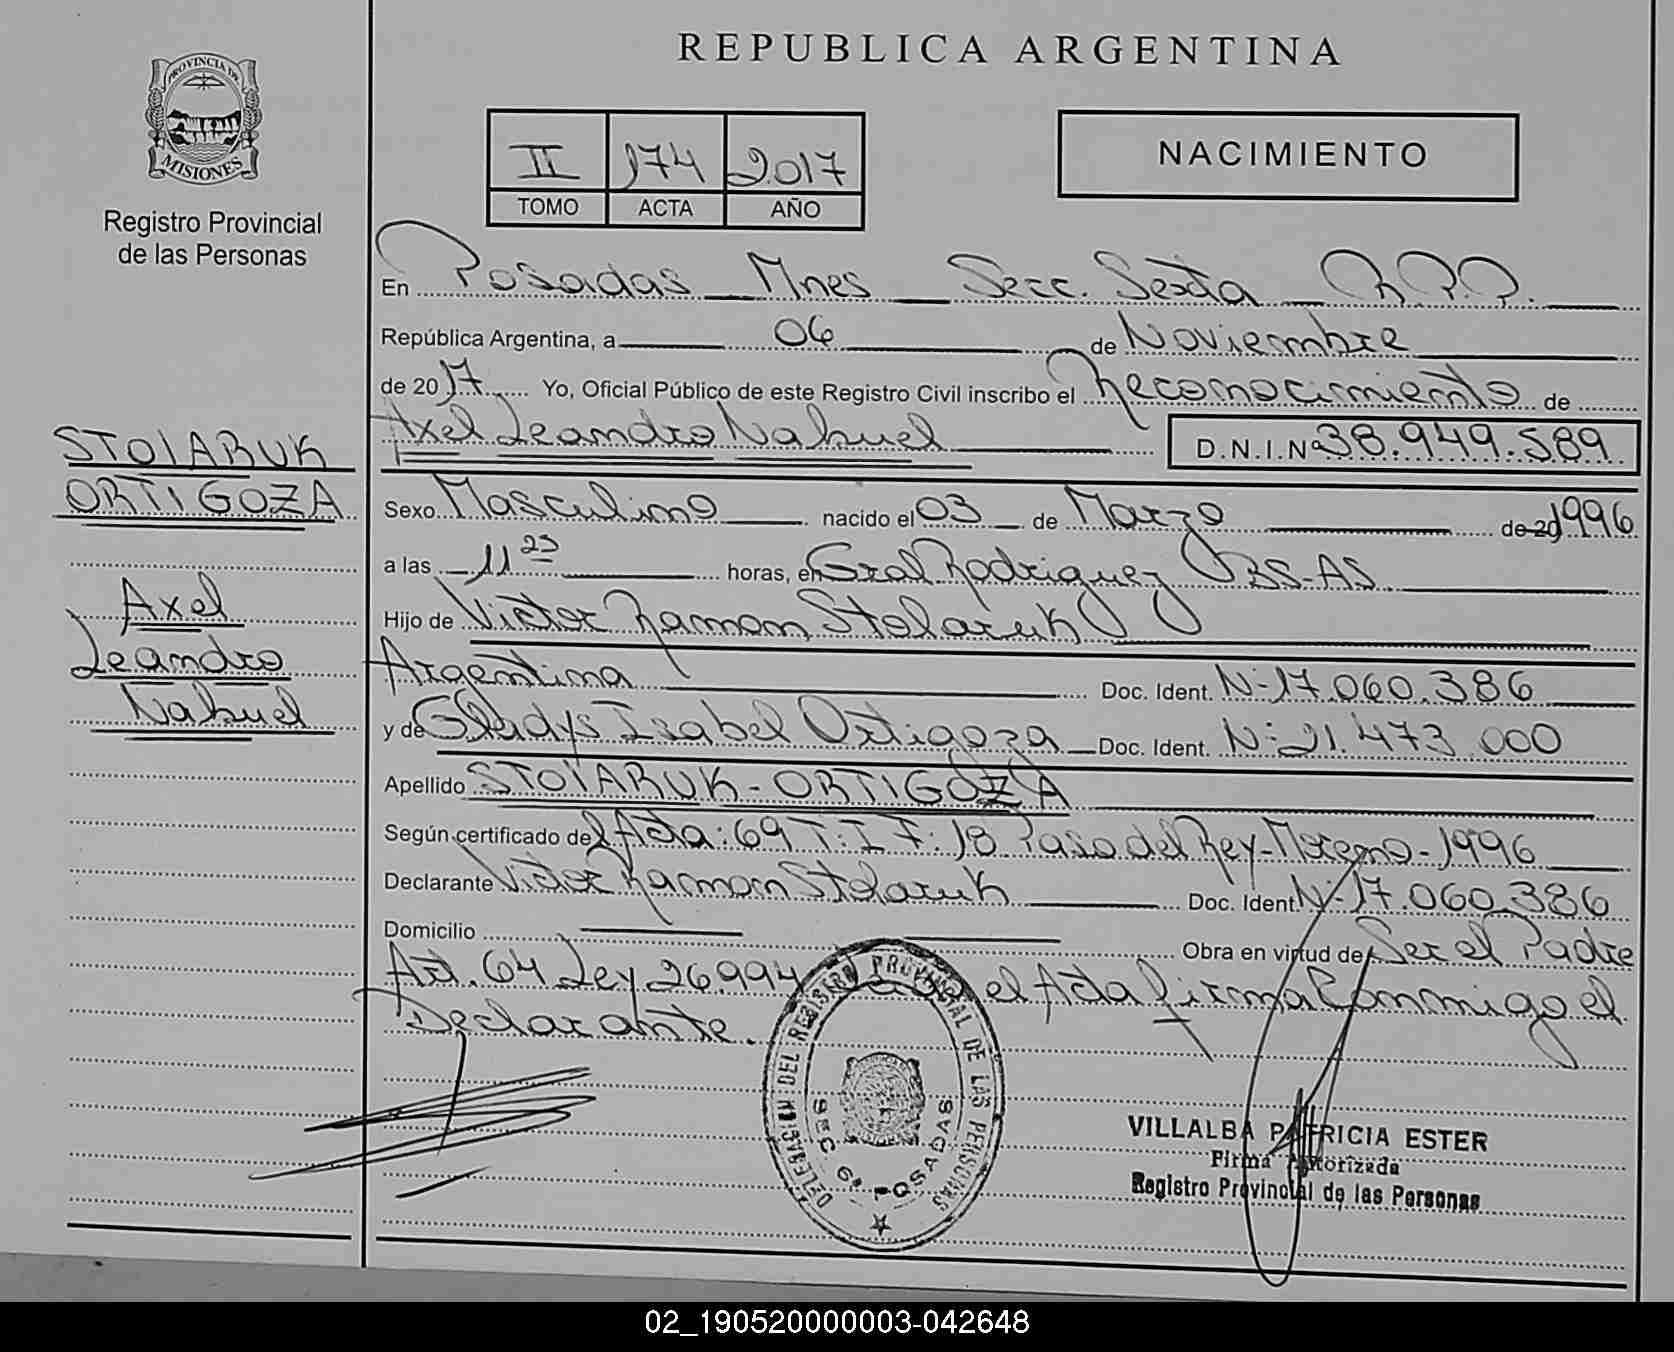 REPUBLICA ARGENTINA
PROVINCIA DE
MISIONES
Registro Provincial
de las Personas
II 174 2017
TOMO ACTA AÑO
NACIMIENTO
En Posadas Mnes Secc. Sexta R.P.P.
República Argentina, a 06 de Noviembre
de 2017 Yo, Oficial Público de este Registro Civil inscribo el Reconocimiento de
Axel Leandro Nahuel D.N.I.Nº 38.949.589
STOlARUK
ORTIGOZA
Axel
Leandro
Nahuel
Sexo Masculino nacido el 03 de Marzo de 20 1996
a las 11 25 horas, en Gral Rodriguez BS-AS
Hijo de Victor Ramon Stolaruk
Argentina Doc. Ident. Nº 17.060.386
y de Gladys Isabel Ortigoza Doc. Ident. Nº 21.473.000
Apellido STOlARUK - ORTIGOZA
Según certificado del Acta: 69 T: I F: 18 Paso del Rey-Moreno-1996
Declarante Victor Ramon Stolaruk Doc. Ident. Nº 17.060.386
Domicilio Obra en virtud de Ser el Padre
Art. 64 Ley 26994 el Acta firma Conmigo el
Declarante.
DELEGACION DEL REGISTRO PROVINCIAL DE LAS PERSONAS
SEC 6ª POSADAS
VILLALBA PATRICIA ESTER
Firma Autorizada
Registro Provincial de las Personas
02_190520000003-042648